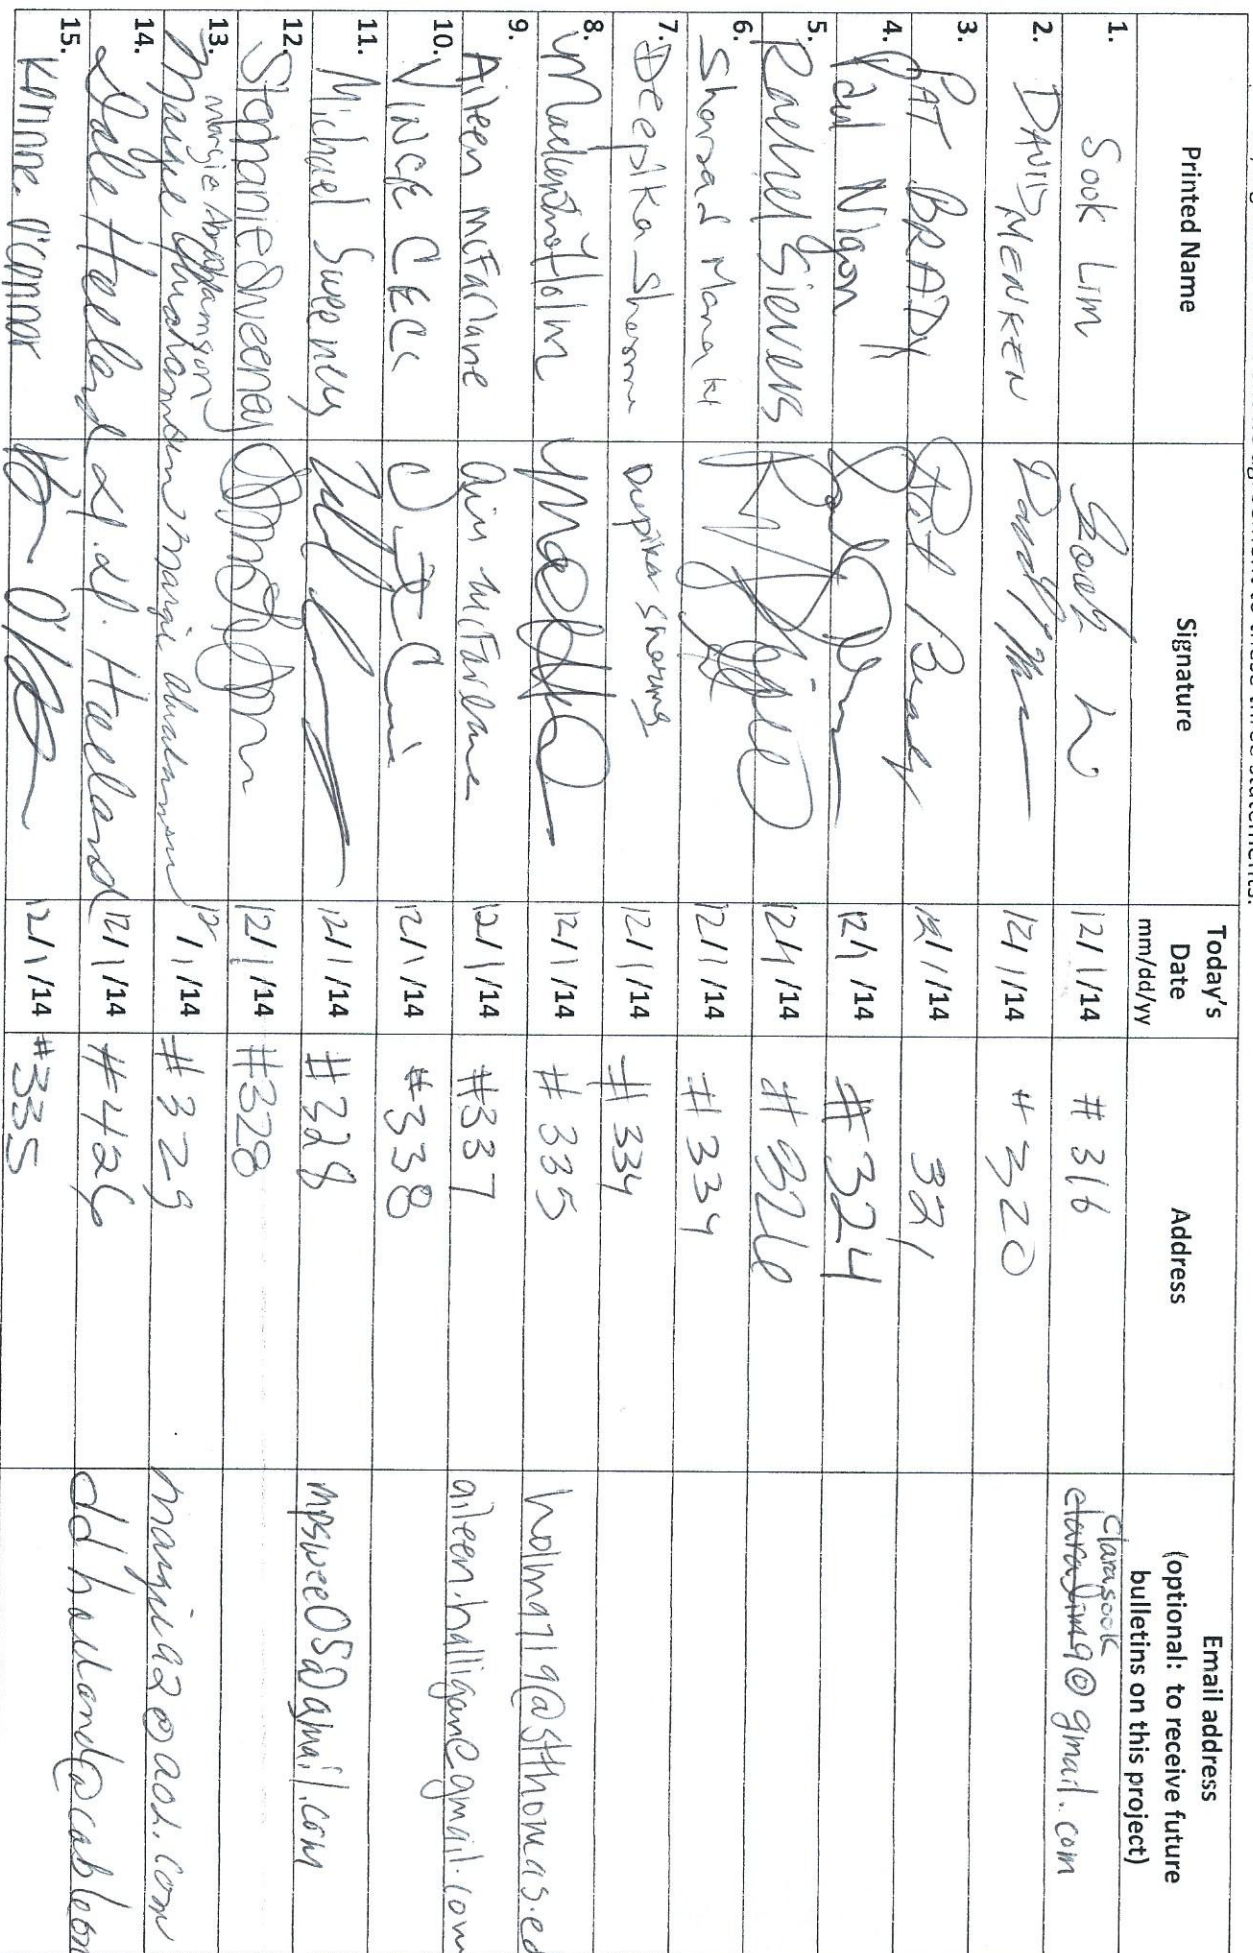 these three statements.
Printed Name Signature Today's Date mm/dd/yy Address Email address (optional: to receive future bulletins on this project)
1. Sook Lim Sook L 12/1/14 #316 clarasook9@gmail.com
2. DAVID MENKEN 12/1/14 #320
3. PAT BRADY Pat Brady 12/1/14 321
4. Paul Nigon 12/1/14 #324
5. Rachel Sievers 12/1/14 #326
6. Sharad 12/1/14 #334
7. Deepika Sharma Deepika Sharma 12/1/14 #334
8. Holm 12/1/14 #335 holm9719@stthomas.ed
9. Aileen McFarlane McFarlane 12/1/14 #337 aileen.halligan@gmail.com
10. VINCE CECI 12/1/14 #338
11. Michael Sweeney 12/1/14 #328 mpswee05@gmail.com
12. Stephanie Sweeney 12/1/14 #328
13. Margie Abrahamson Margie Abrahamson Margie Abrahamson 12/1/14 #329 margie92@aol.com
14. Dale Holland Holland 12/1/14 #426 ddholland@cableon
15. Korinne O'Connor 12/1/14 #335